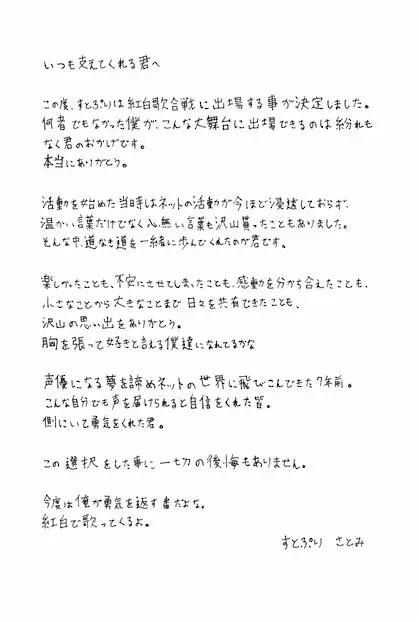 いつも支えてくれる君へ
この度、すとぷりは紅白歌合戦に出場する事が決定しました。
何者でもなかった僕が、こんな大舞台に出場できるのは紛れも
なく君のおかげです。
本当にありがとう。
活動を始めた当時はネットの活動が今ほど浸透しておらず、
温かい言葉だけでなく心無い言葉も沢山貰ったこともありました。
そんな中、道なき道を一緒に歩んでくれたのが君です。
楽しかったことも、不安にさせてしまったことも、感動を分かち合えたことも、
小さなことから大きなことまで日々を共有できたことも、
沢山の思い出をありがとう。
胸を張って好きと言える僕達になれてるかな
声優になる夢を諦めネットの世界に飛びこんできた7年前。
こんな自分でも声を届けられると自信をくれた皆。
側にいて勇気をくれた君。
この選択をした事に一切の後悔もありません。
今度は俺が勇気を返す番だよな。
紅白で歌ってくるよ。
すとぷり さとみ